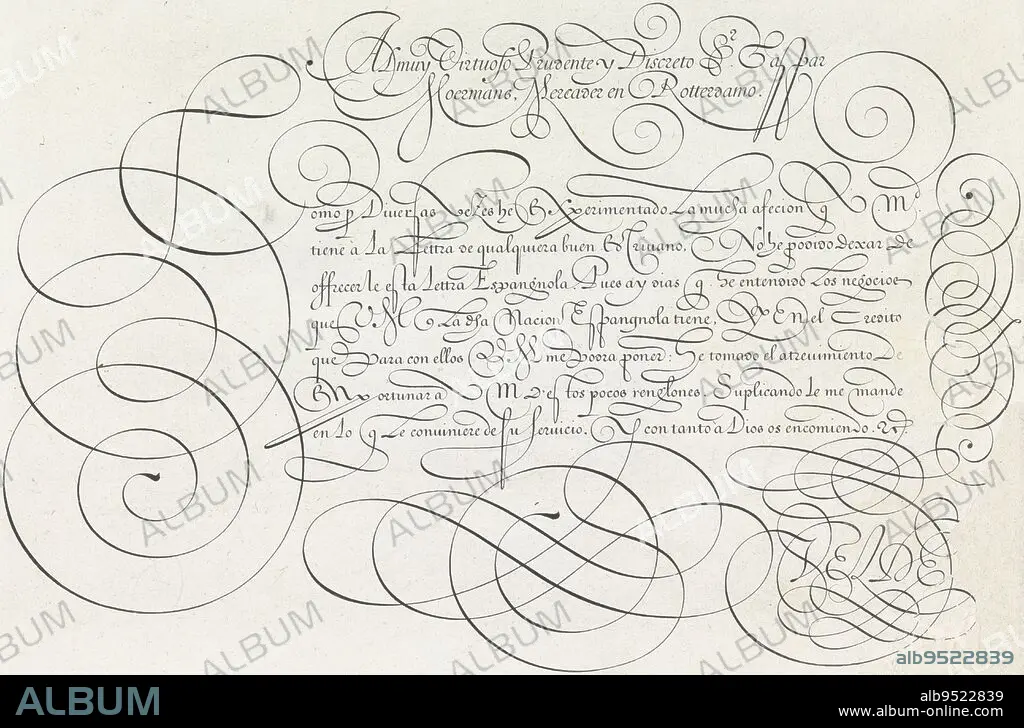 Al muy Virtuoso, Prudente y Discreto Sr. Gaspar
Moermans, Mercader en Rotterdamo.
Como p Diuersas Vezes he Experimentado La mucha afecion q V. Md.
tiene a La Lettra de qualquiera buen Escriuano. No he podido dexar de
offrecerle esta Lettra Espangnola. Pues ay dias q. he entendido Los negocios
que V.M. q La dha Nacion Espangnola tiene, Y en el Credito
que Para con ellos V.M me podra poner: he tomado el atreuimiento De
Importunar a V M. d'estos pocos renglones. Suplicando Le me mande
en Lo q Le conuiniere de su seruicio. Y con tanto a Dios os encomiendo. &c.
VELDE
ALBUM
alb9522839
ALBUM
alb9522839
www.album-online.com